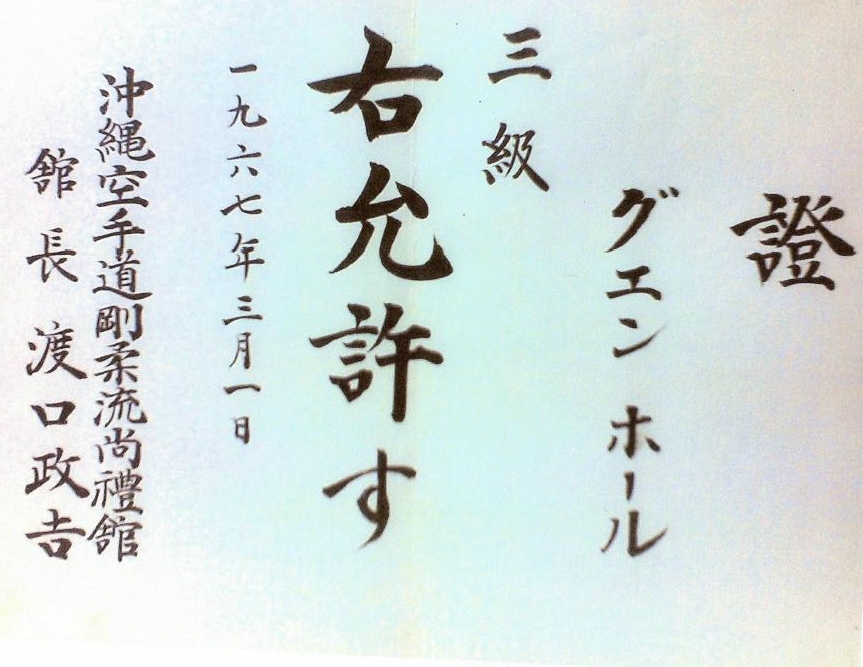 證
グエン ホール
三級
右允許す
一九六七年三月一日
沖縄空手道剛柔流尚禮舘
舘長 渡口政吉